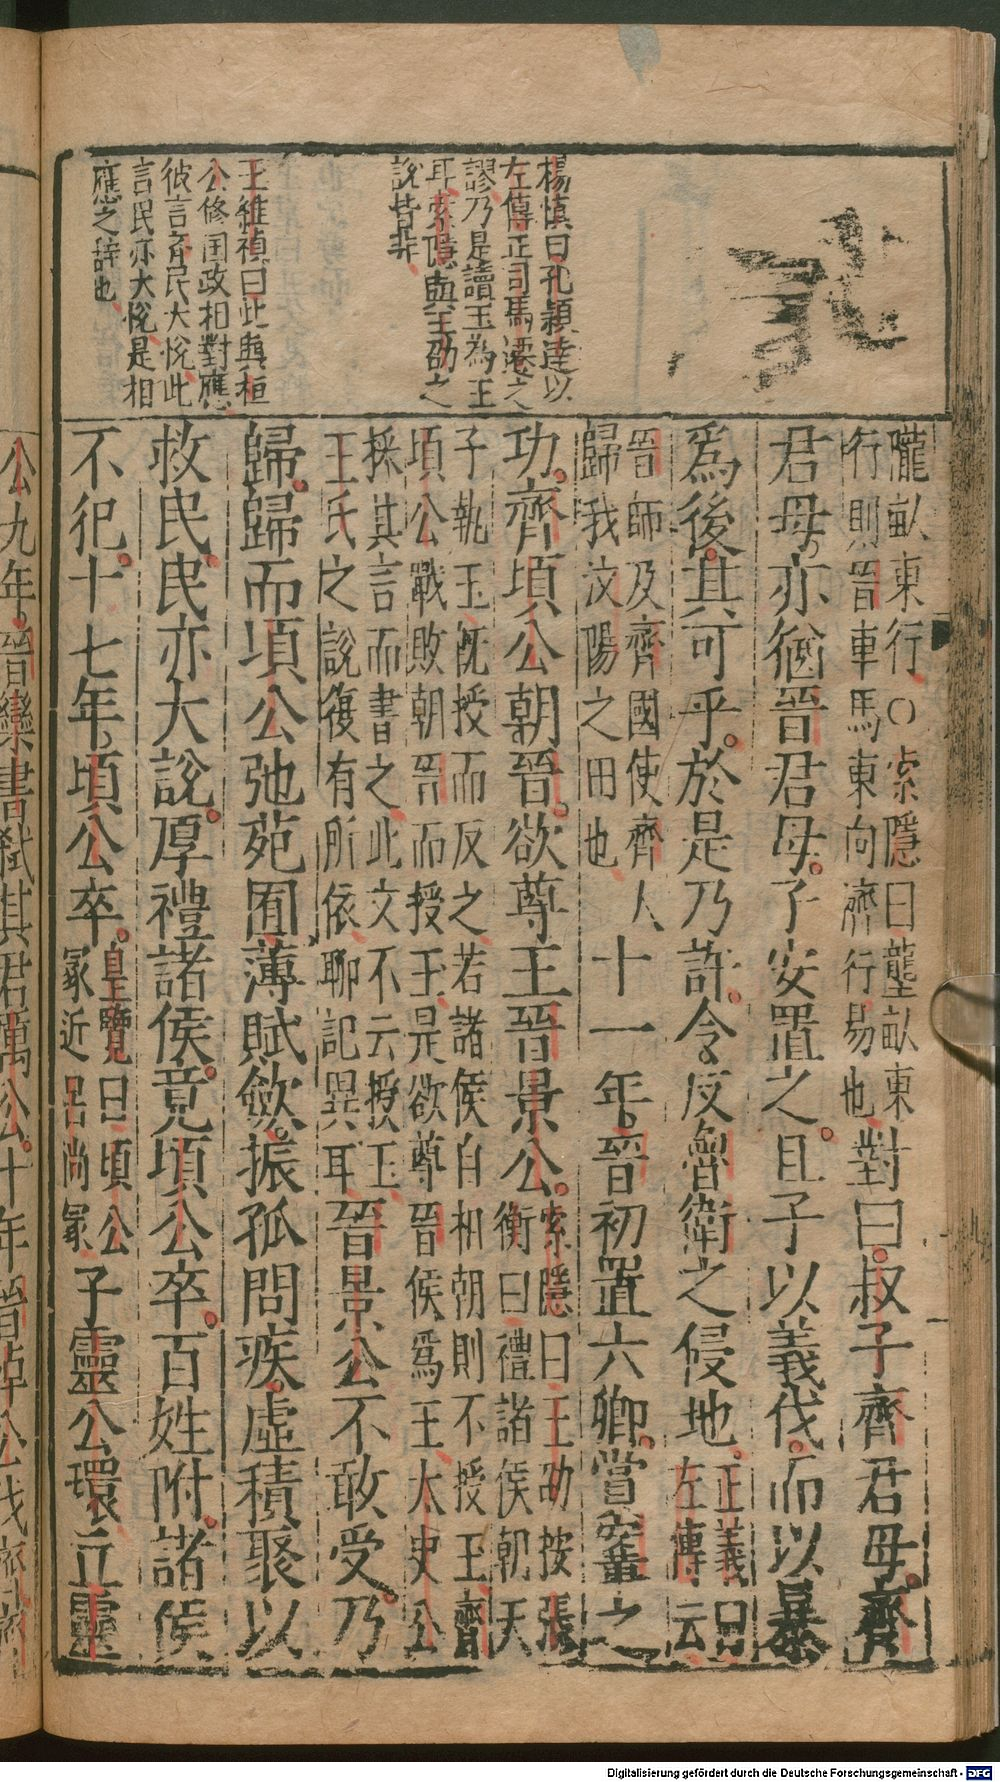 楊慎曰孔穎達以
左傳正司馬遷之
謬乃是讀玉為王
耳索隱與王劭之
說皆非
王維禎曰此與桓
公修国政相對應
彼言齊民大悅此
言民亦大悅是相
應之辞也
隴畝東行○索隱曰壟畝東
行則晉車馬東向濟行易也
對曰叔子齊君母齊
君母亦猶晉君母子安置之且子以義伐而以暴
為後其可乎於是乃許令反魯衛之侵地
正義曰
左傳云
晉師及齊國使齊人
歸我汶陽之田也
十一年晉初置六卿賞鞌之
功齊頃公朝晉欲尊王晉景公
索隱曰王劭按張
衡曰禮諸侯朝天
子執玉旣授而反之若諸侯自相朝則不授玉齊
頃公戰敗朝晉而授玉是欲尊晉侯爲王太史公
採其言而書之此文不云授玉
王氏之說復有所依聊記異耳
晉景公不敢受乃
歸歸而頃公弛苑囿薄賦斂振孤問疾虛積聚以
救民民亦大說厚禮諸侯竟頃公卒百姓附諸侯
不犯十七年頃公卒
皇覽曰頃公
冢近呂尚冢
子靈公環立靈
公九年晉欒書弒其君厲公十年晉悼公伐齊
Digitalisierung gefördert durch die Deutsche Forschungsgemeinschaft - DFG